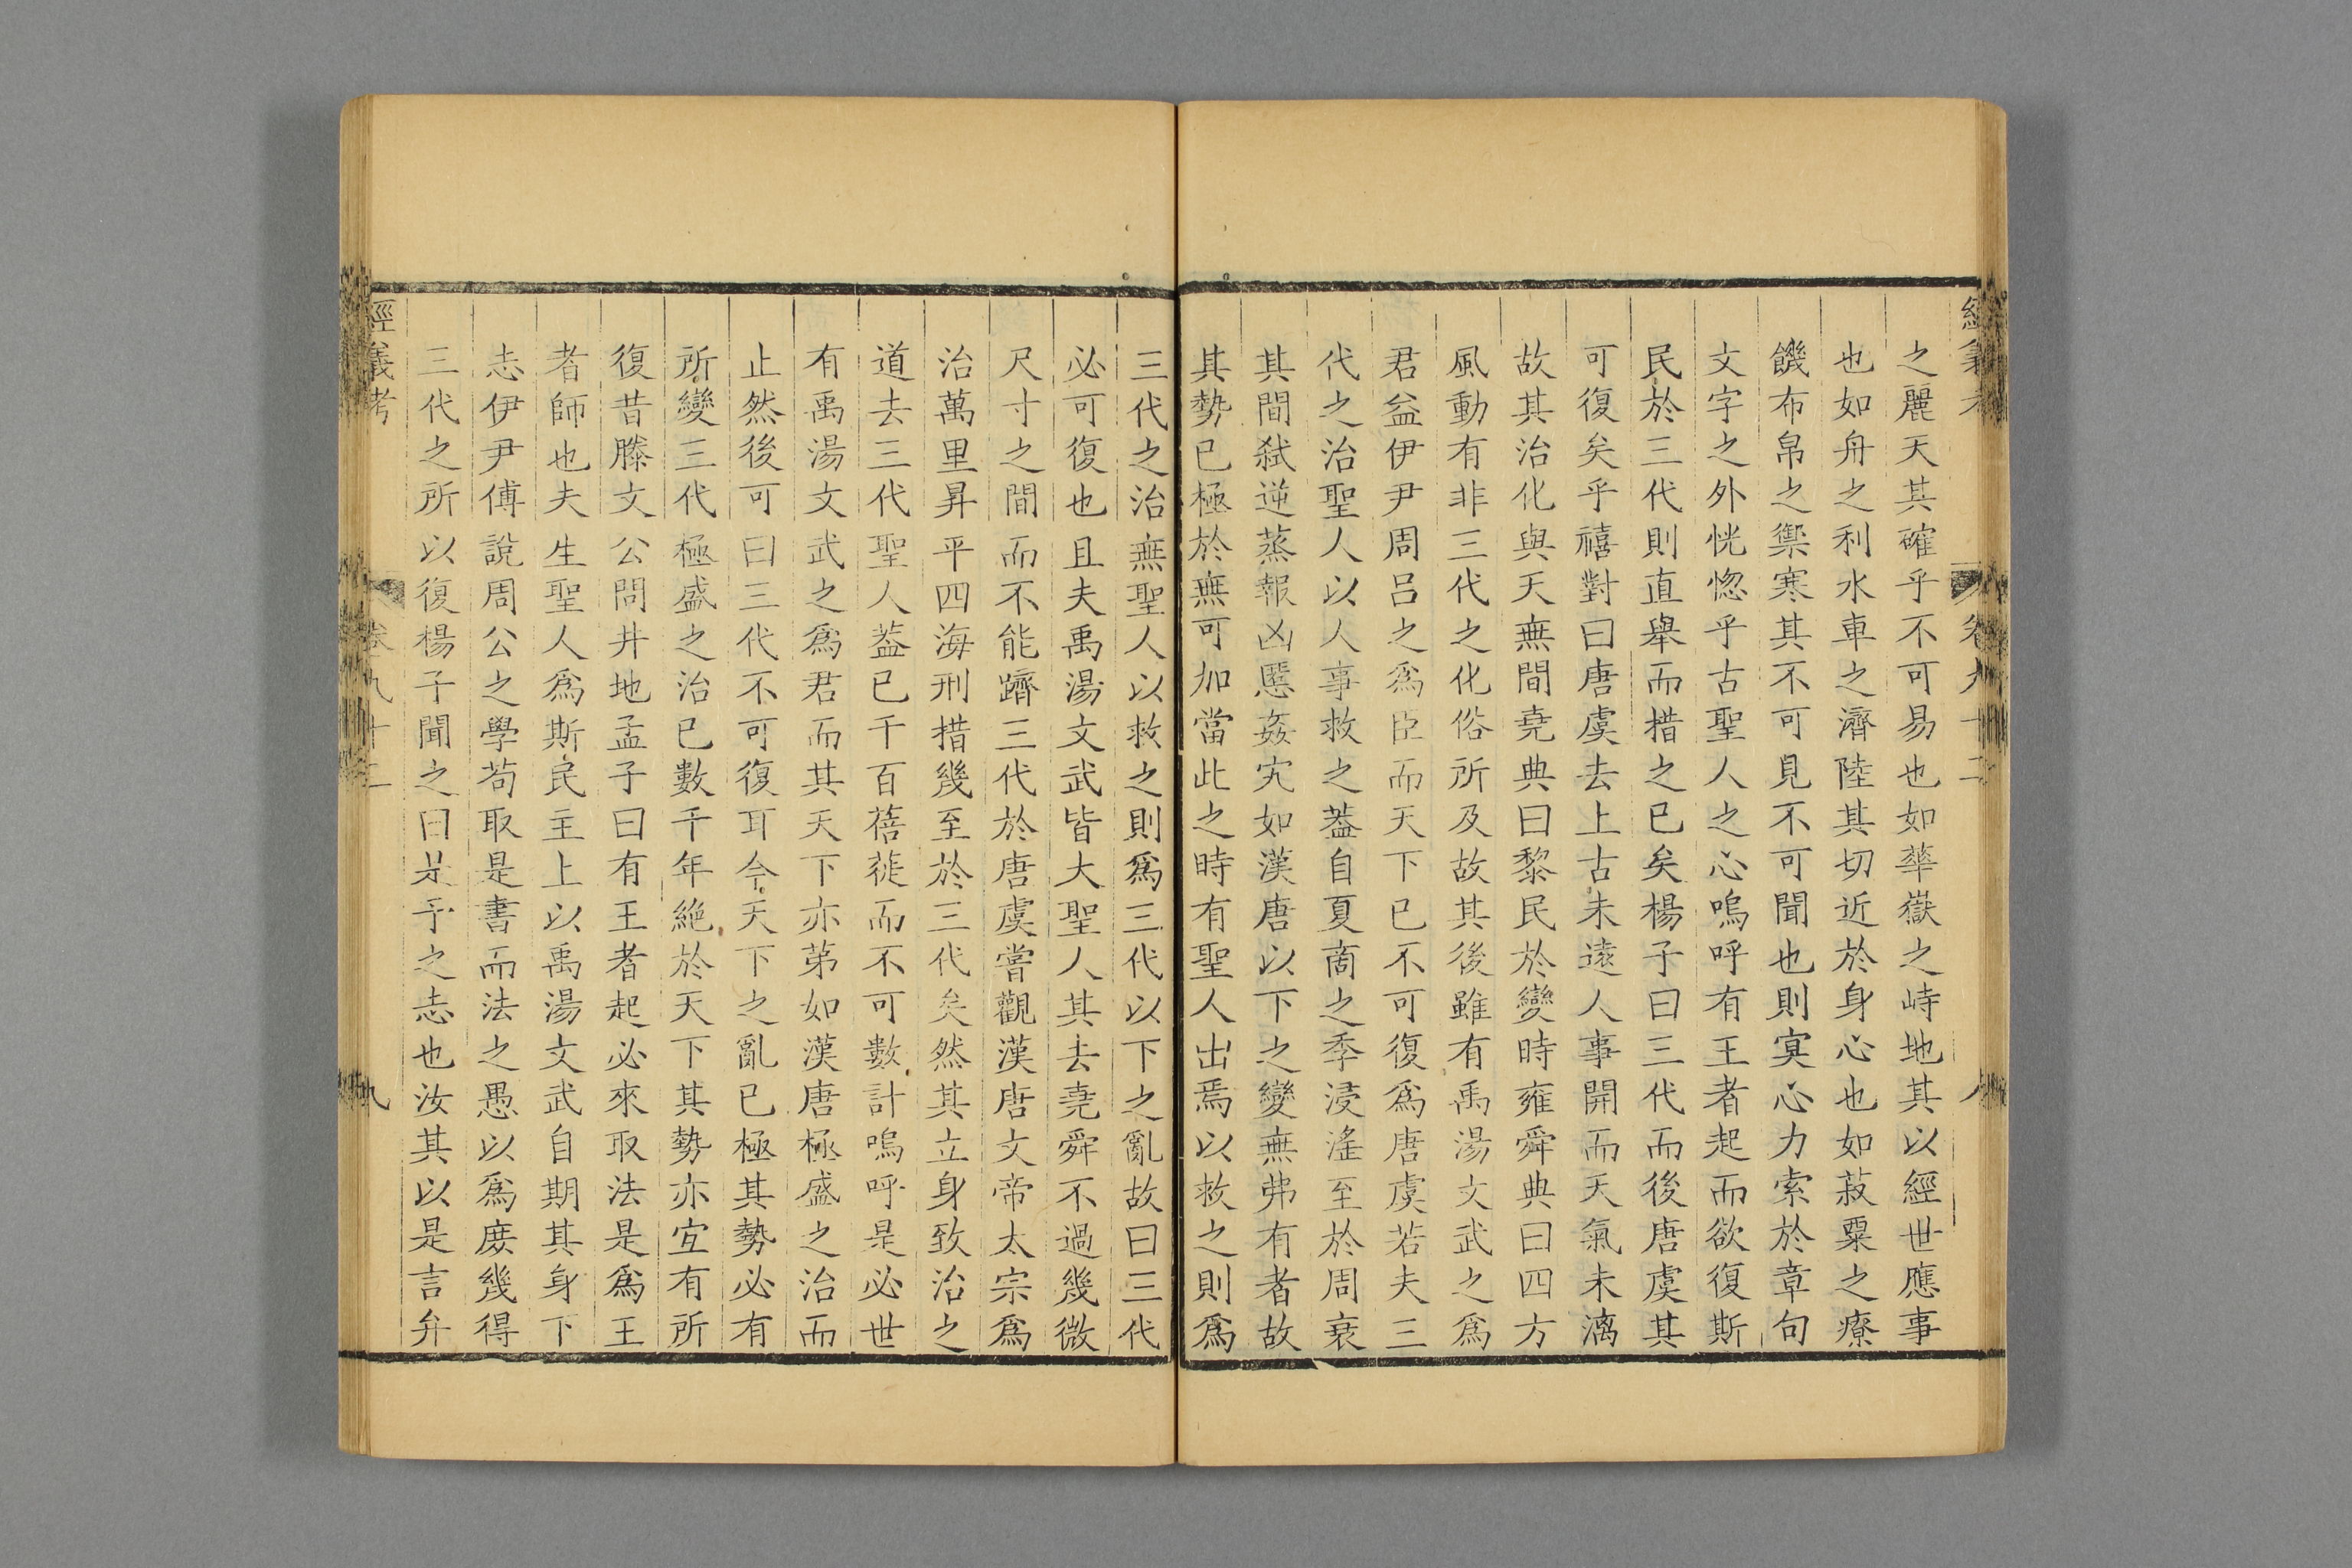 經義考 卷九十二 八
之麗天其確乎不可易也如華嶽之峙地其以經世應事
也如舟之利水車之濟陸其切近於身心也如菽粟之療
饑布帛之禦寒其不可見不可聞也則寞心力索於章句
文字之外恍惚乎古聖人之心嗚呼有王者起而欲復斯
民於三代則直舉而措之已矣楊子曰三代而後唐虞其
可復矣乎禧對曰唐虞去上古未遠人事開而天氣未漓
故其治化與天無間堯典曰黎民於變時雍舜典曰四方
風動有非三代之化俗所及故其後雖有禹湯文武之為
君益伊尹周呂之為臣而天下已不可復為唐虞若夫三
代之治聖人以人事救之葢自夏商之季浸滛至於周衰
其間弑逆蒸報凶慝姦宄如漢唐以下之變無弗有者故
其勢已極於無可加當此之時有聖人出焉以救之則爲
三代之治無聖人以救之則爲三代以下之亂故曰三代
必可復也且夫禹湯文武皆大聖人其去堯舜不過幾微
尺寸之間而不能躋三代於唐虞嘗觀漢唐文帝太宗爲
治萬里昇平四海刑措幾至於三代矣然其立身致治之
道去三代聖人葢已千百蓓蓰而不可數計嗚呼是必世
有禹湯文武之爲君而其天下亦第如漢唐極盛之治而
止然後可曰三代不可復耳今天下之亂已極其勢必有
所變三代極盛之治已數千年絶於天下其勢亦宜有所
復昔滕文公問井地孟子曰有王者起必來取法是爲王
者師也夫生聖人爲斯民主上以禹湯文武自期其身下
志伊尹傅說周公之學苟取是書而法之愚以爲庻幾得
三代之所以復楊子聞之曰是予之志也汝其以是言弁
經義考 卷九十二 九